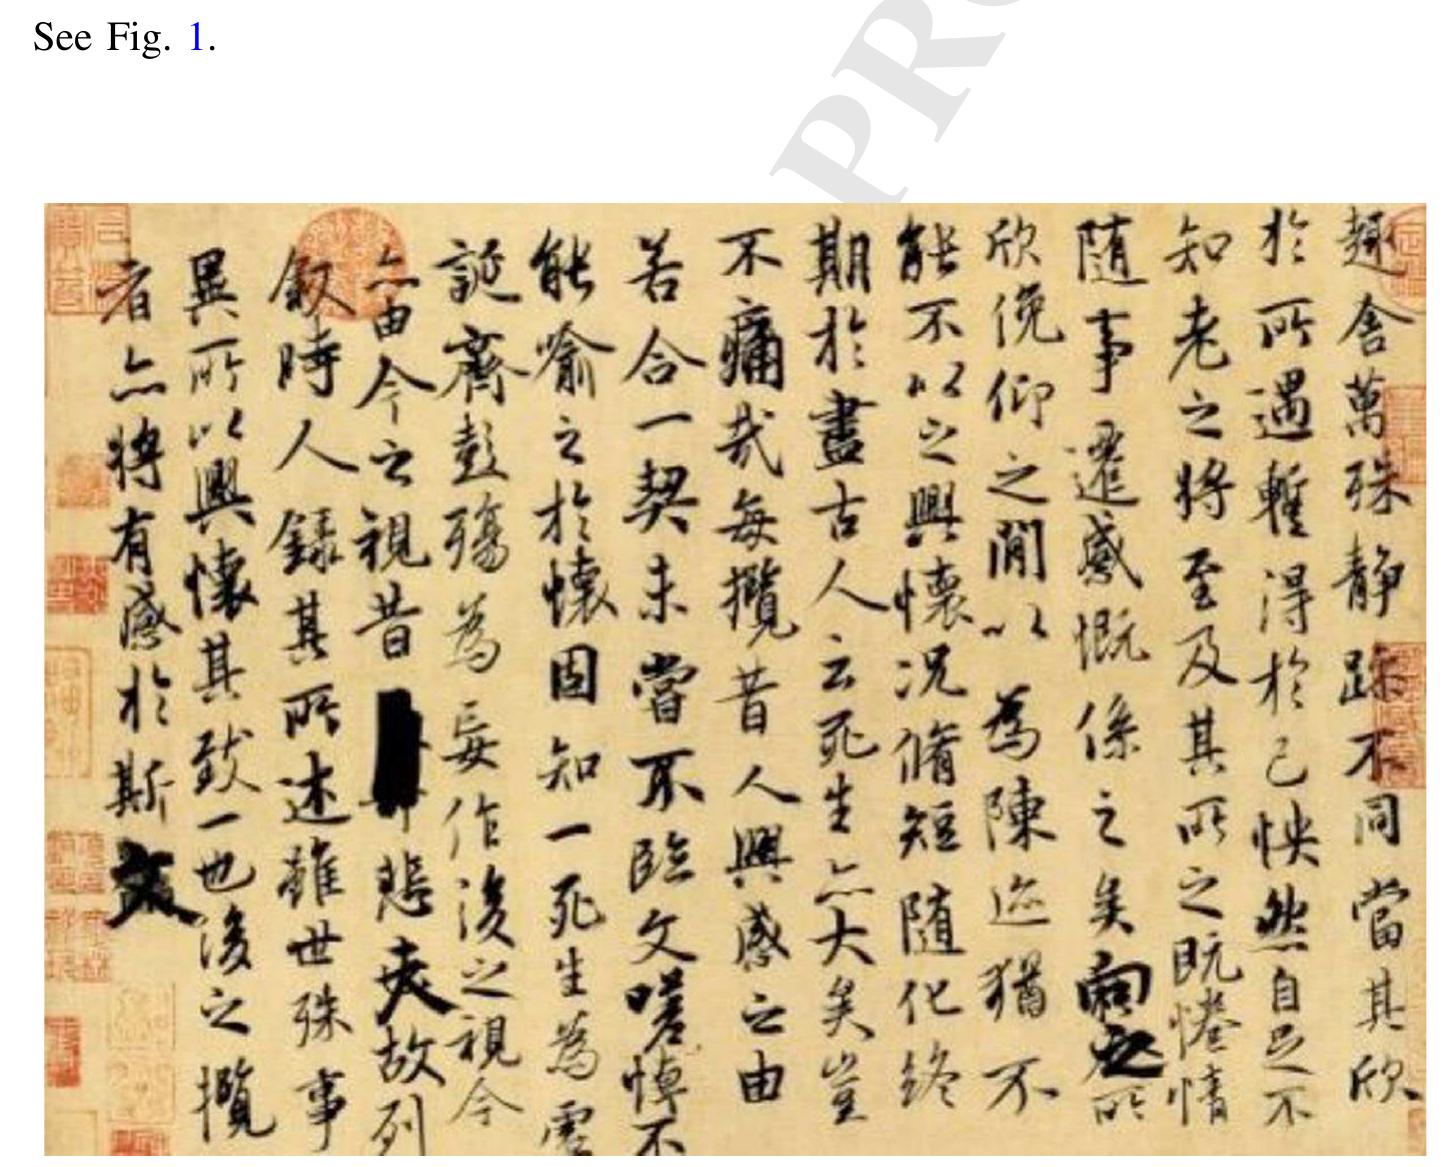 See Fig. 1.
PR
趣舍萬殊静躁不同當其欣
於所遇蹔得於己怏然自足不
知老之將至及其所之既惓情
隨事遷感慨係之矣向之所
欣俛仰之閒以為陳迹猶不
能不以之興懷況脩短隨化終
期於盡古人云死生亦大矣豈
不痛哉每攬昔人興感之由
若合一契未嘗不臨文嗟悼不
能喻之於懷固知一死生為虛
誕齊彭殤為妄作後之視今
亦由今之視昔悲夫故列
敘時人錄其所述雖世殊事
異所以興懷其致一也後之攬
者亦將有感於斯文